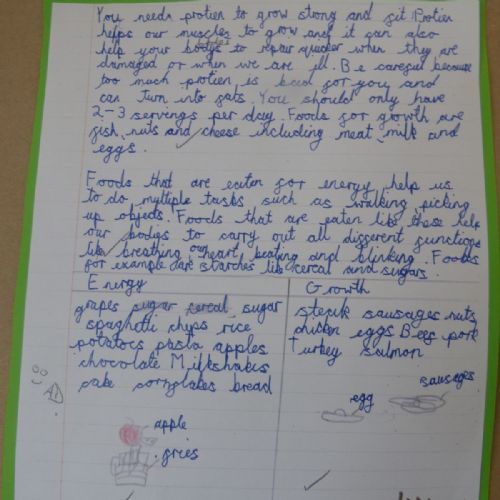 You need protien to grow strong and fit. Protien
helps our muscles to grow and it can also
help your bodys to repair quicker when they are
damaged or when we are ill. Be careful because
too much protien is bad for you and
can turn into fats. You should only have
2-3 servings per day. Foods for growth are
fish, nuts and cheese including meat, milk and
eggs.
Foods that are eaten for energy help us
to do multiple tasks such as walking, picking
up objects. Foods that are eaten like these help
our bodies to carry out all different functions
like breathing, our heart beating and blinking. Foods
for example are starches like cereal and sugars.
Energy
grapes sugar cereal sugar
spaghetti chips rice
potatoes pasta apples
chocolate Milkshakes
cake cornflakes bread
apple
fries
Growth
steak sausages nuts
chicken eggs Beef pork
Turkey salmon
sausages
egg